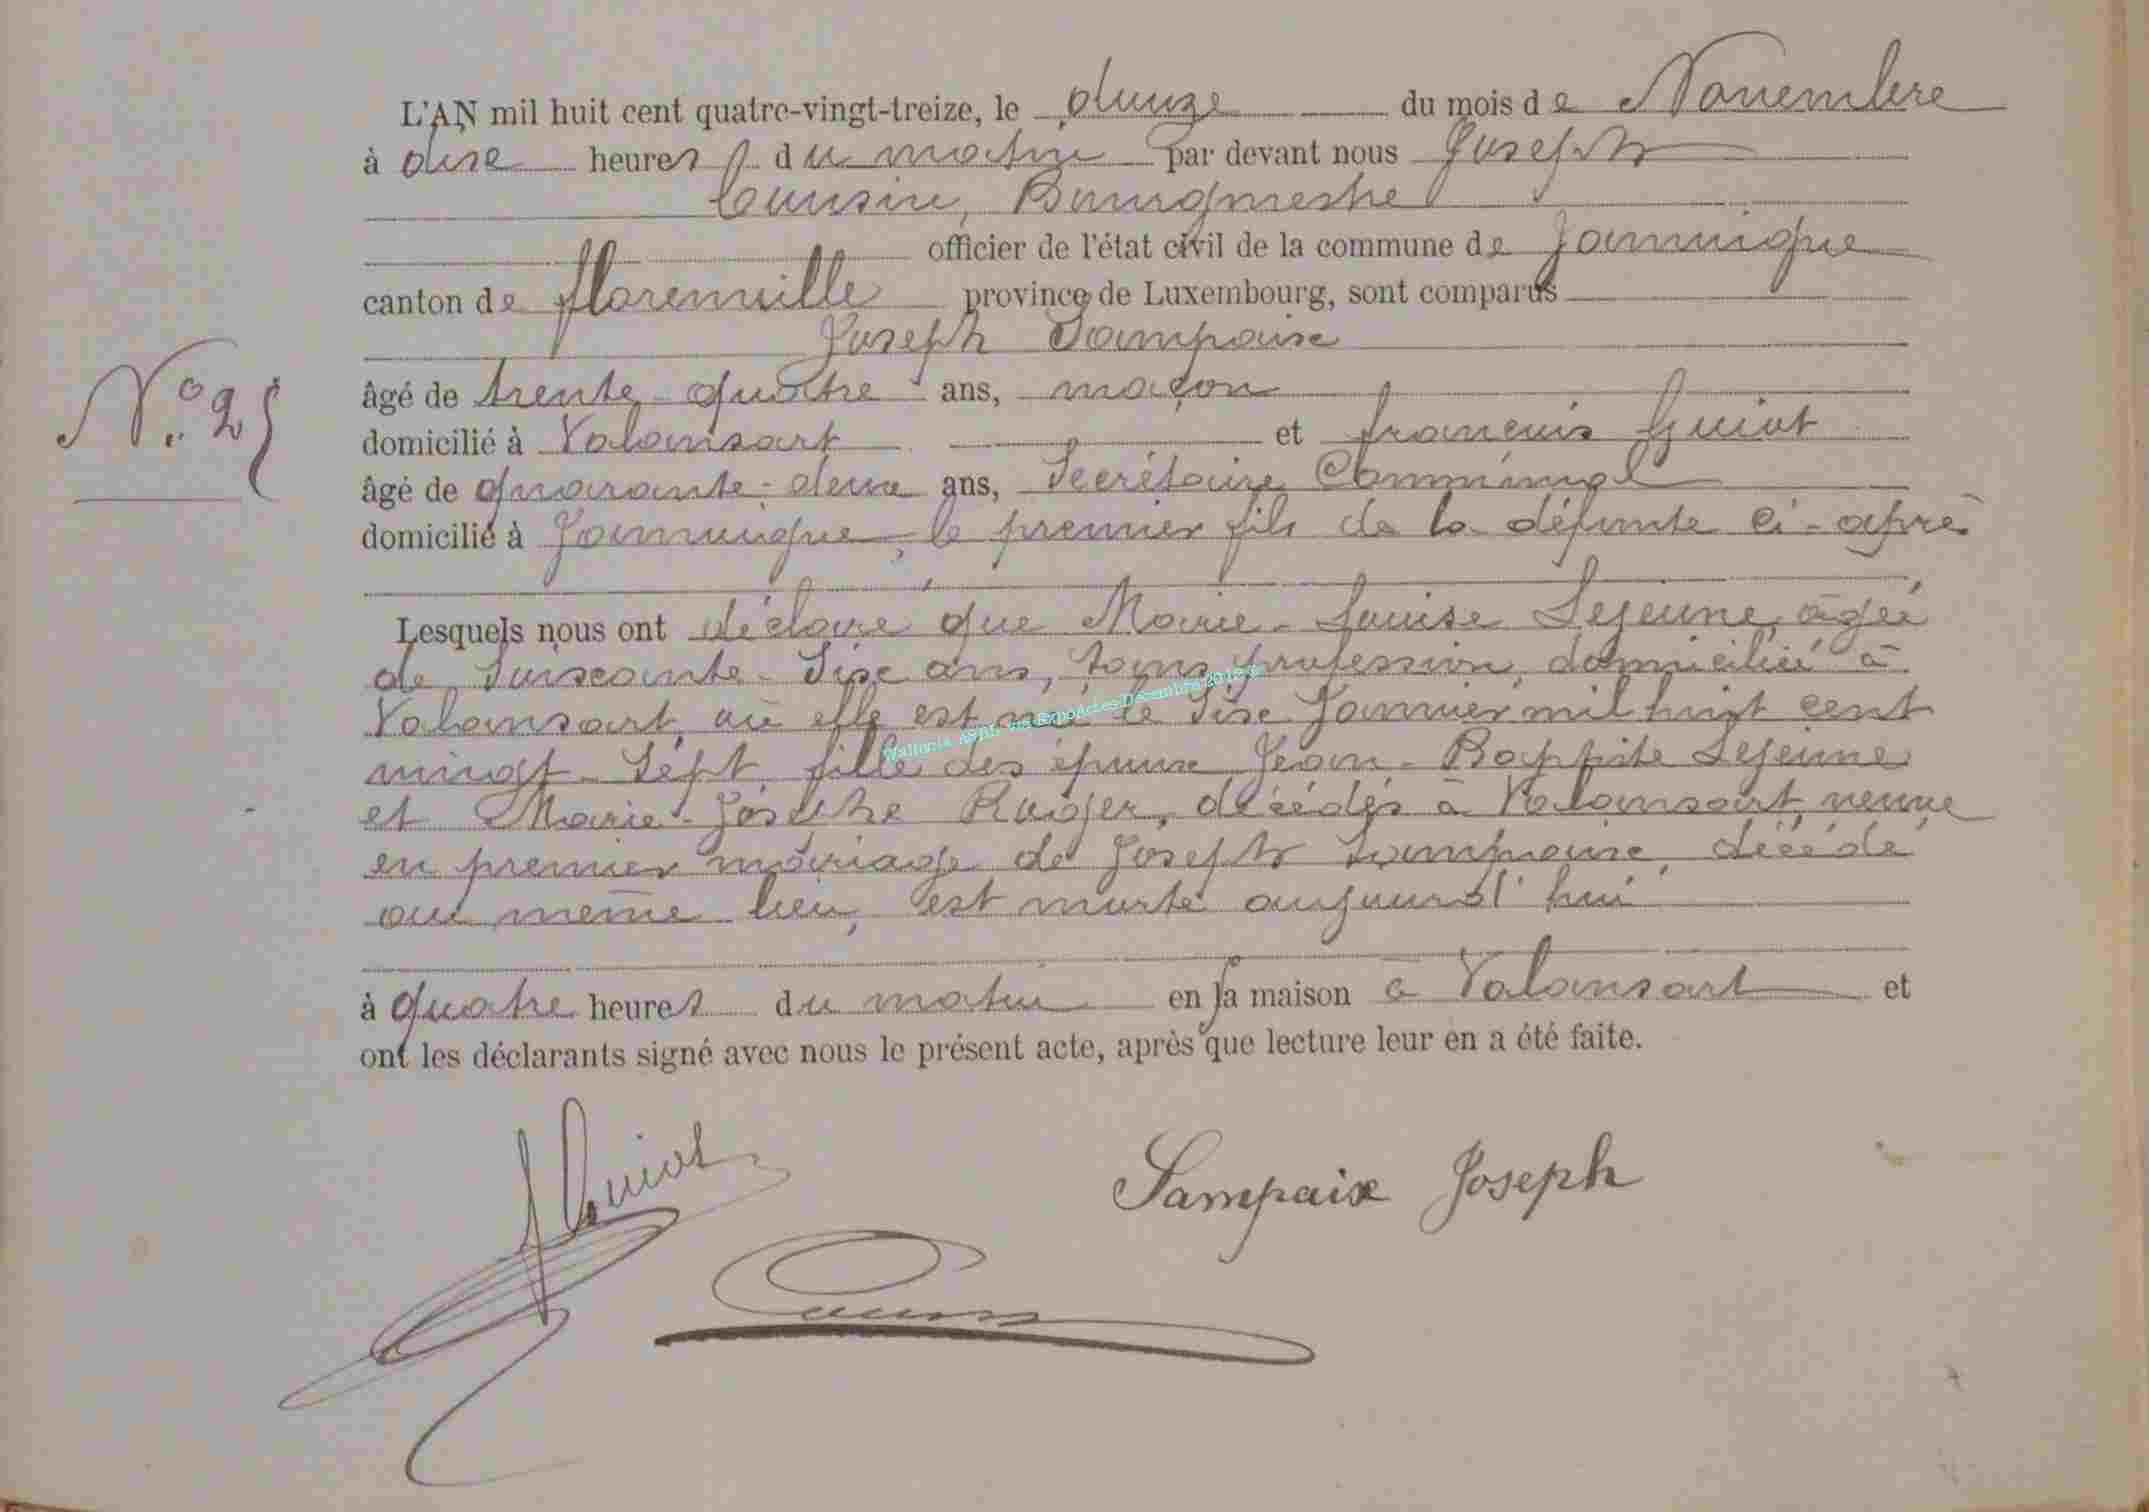 L'AN mil huit cent quatre-vingt-treize, le douze du mois de Novembre
à dix heures du matin par devant nous Joseph
Cousin, Bourgmestre
officier de l'état civil de la commune de Jamoigne
canton de florenville province de Luxembourg, sont comparus
Joseph Sampaix
N° 25
âgé de trente-quatre ans, maçon
domicilié à Valansart et françois Guiot
âgé de quarante-deux ans, Secrétaire Communal
domicilié à Jamoigne, le premier fils de la défunte ci-après
Lesquels nous ont déclaré que Marie-Louise Lejeune, âgée
de Soixante-Six ans, Sans profession, domiciliée à
Valansart, où elle est née le Six Janvier mil huit cent
vingt-Sept fille des époux Jean-Baptiste Lejeune
et Marie-Josèphe décédés à Valansart, veuve
en premier mariage de Joseph Sampaix, décédé
au même lieu, est morte aujourd'hui
à quatre heures du matin en sa maison à Valansart et
ont les déclarants signé avec nous le présent acte, après que lecture leur en a été faite.
Guiot
Sampaix Joseph
Cousin